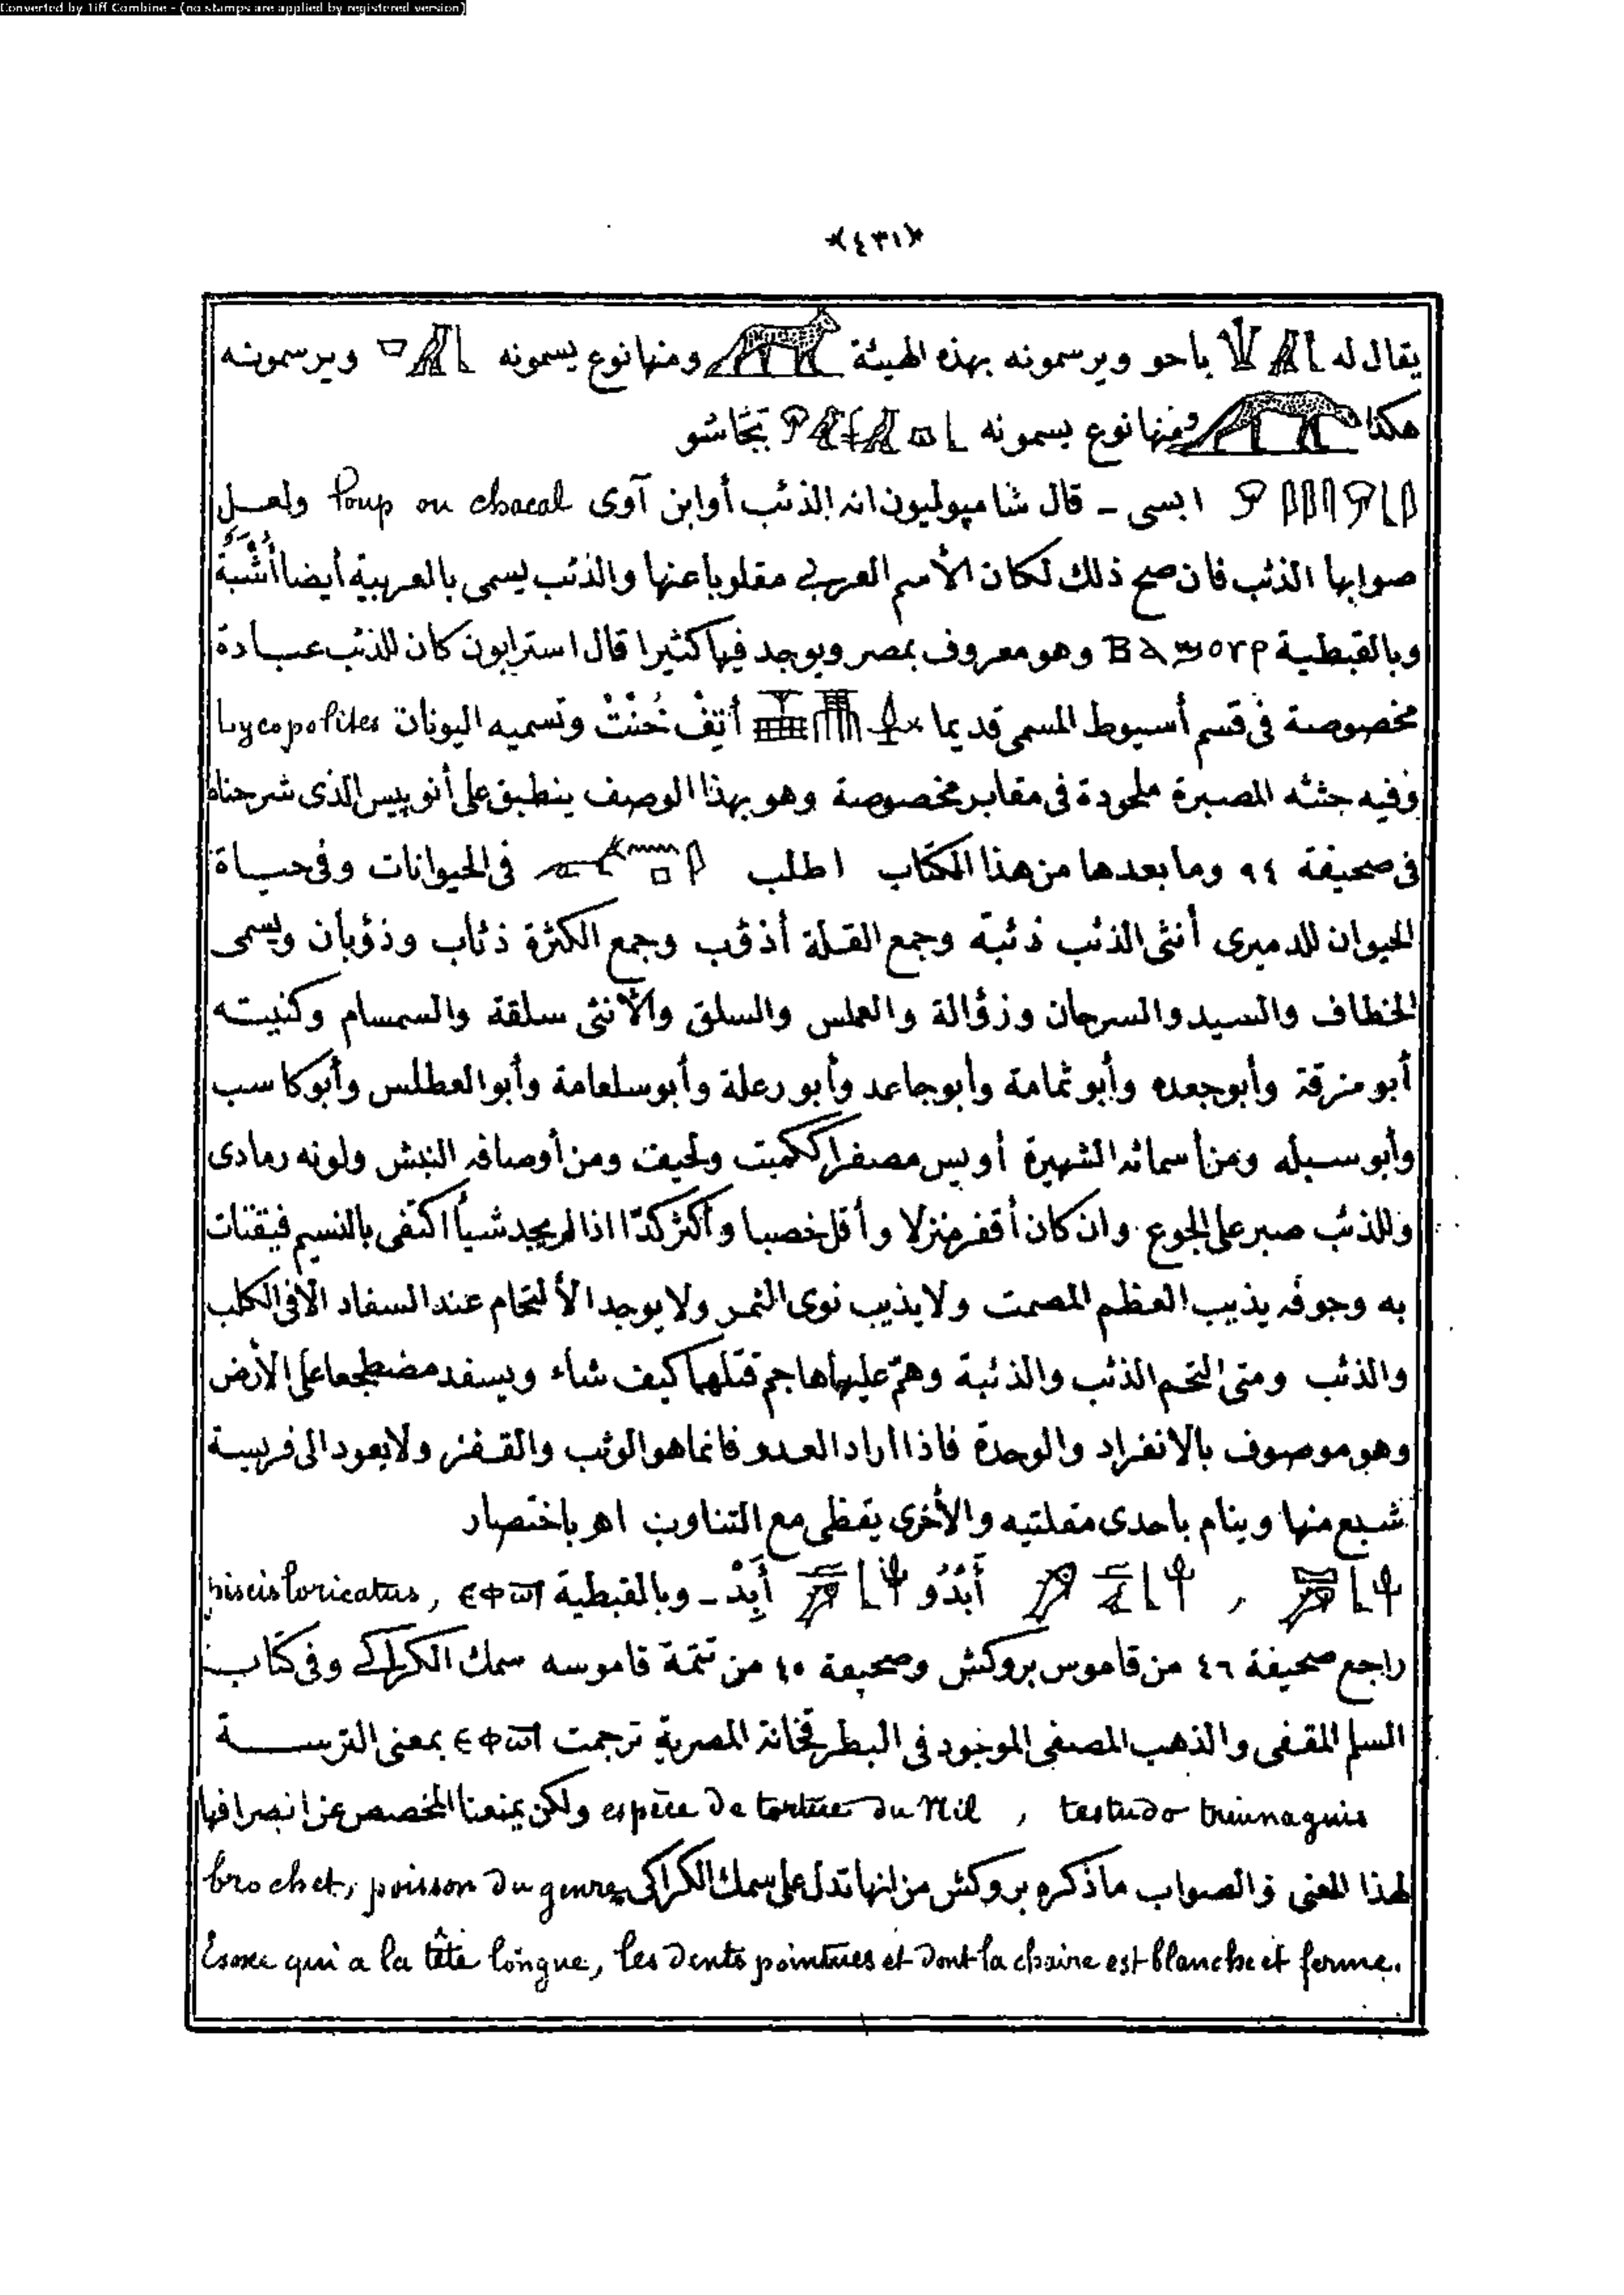 Converted by Tiff Combine - (no stamps are applied by registered version)
*(٤٣١)*
يقال له باحو ويرسمونه بهذه الهيئة ومنها نوع يسمونه ويرسمونه
هكذا ومنها نوع يسمونه
ابسى - قال شامپوليون انه الذئب أوابن آوى loup ou chacal ولعل
صوابها الذئب فان صح ذلك لكان الأسم العربي مقلوبا عنها والذئب يسمى بالعربية أيضا أشبة
وبالقبطية Ⲃⲁϣⲟⲣ وهو معروف بمصر ويوجد فيها كثيرا قال استرابون كان للذئب عبادة
مخصوصة فى قسم أسيوط المسمى قديما أتِفْ خُنْتْ وتسميه اليونان Lycopolites
وفيه جثثه المصبرة ملحودة فى مقابر مخصوصة وهو بهذا الوصف ينطبق على أنوبيس الذى شرحناه
فى صحيفة ٩٤ وما بعدها من هذا الكتاب اطلب فى الحيوانات وفى حياة
الحيوان للدميرى أنثى الذئب ذئبة وجمع القلة أذؤب وجمع الكثرة ذئاب وذؤبان ويسمى
الخطاف والسيد والسرحان وذؤالة والعملس والسلق والأنثى سلقة والسمسام وكنيته
أبو مزقة وأبو جعده وأبو ثمامة وأبو جاعد وأبو رعلة وأبو سلعامة وأبو العطلس وأبو كاسب
وأبو سبله ومن أسمائه الشهيرة أويس مصغرا ككميت ولحيف ومن أوصافه الغبش ولونه رمادى
وللذئب صبر على الجوع وان كان أقفر منزلا وأقل خصبا وأكثر كدّا اذا لم يجد شيأ اكتفى بالنسيم فيقتات
به وجوفه يذيب العظم المصمت ولا يذيب نوى الثمر ولا يوجد الألتحام عند السفاد الا فى الكلب
والذئب ومتى التحم الذئب والذئبة وهمّ عليها هاجم قتلهما كيف شاء ويسفد مضطجعا على الأرض
وهو موصوف بالانفراد والوحدة فاذا أراد العدو فانما هو الوثب والقفز ولا يعود الى فريسة
شبع منها وينام باحدى مقلتيه والأخرى يقظى مع التناوب اهر باختصار
, أَبْدُو أَبِدْ - وبالقبطية ⲉⲫⲱⲧ , piscis loricatus
راجع صحيفة ٤٦ من قاموس بروكش وصحيفة ٤٥ من تتمة قاموسه سمك الكراكى وفى كتاب
السلم المقفى والذهب المصفى الموجود فى البطرقخانة المصرية ترجمت ⲉⲫⲱⲧ بمعنى الترسة
testudo triunaguis , espèce de tortue du Nil ولكن يمنعنا المخصص عن انصرافها
لهذا المعنى فالصواب ما ذكره بروكش من انها تدل على سمك الكراكى brochet, poisson du genre
Esoxe qui a la tête longue, les dents pointues et dont la chaire est blanche et ferme.